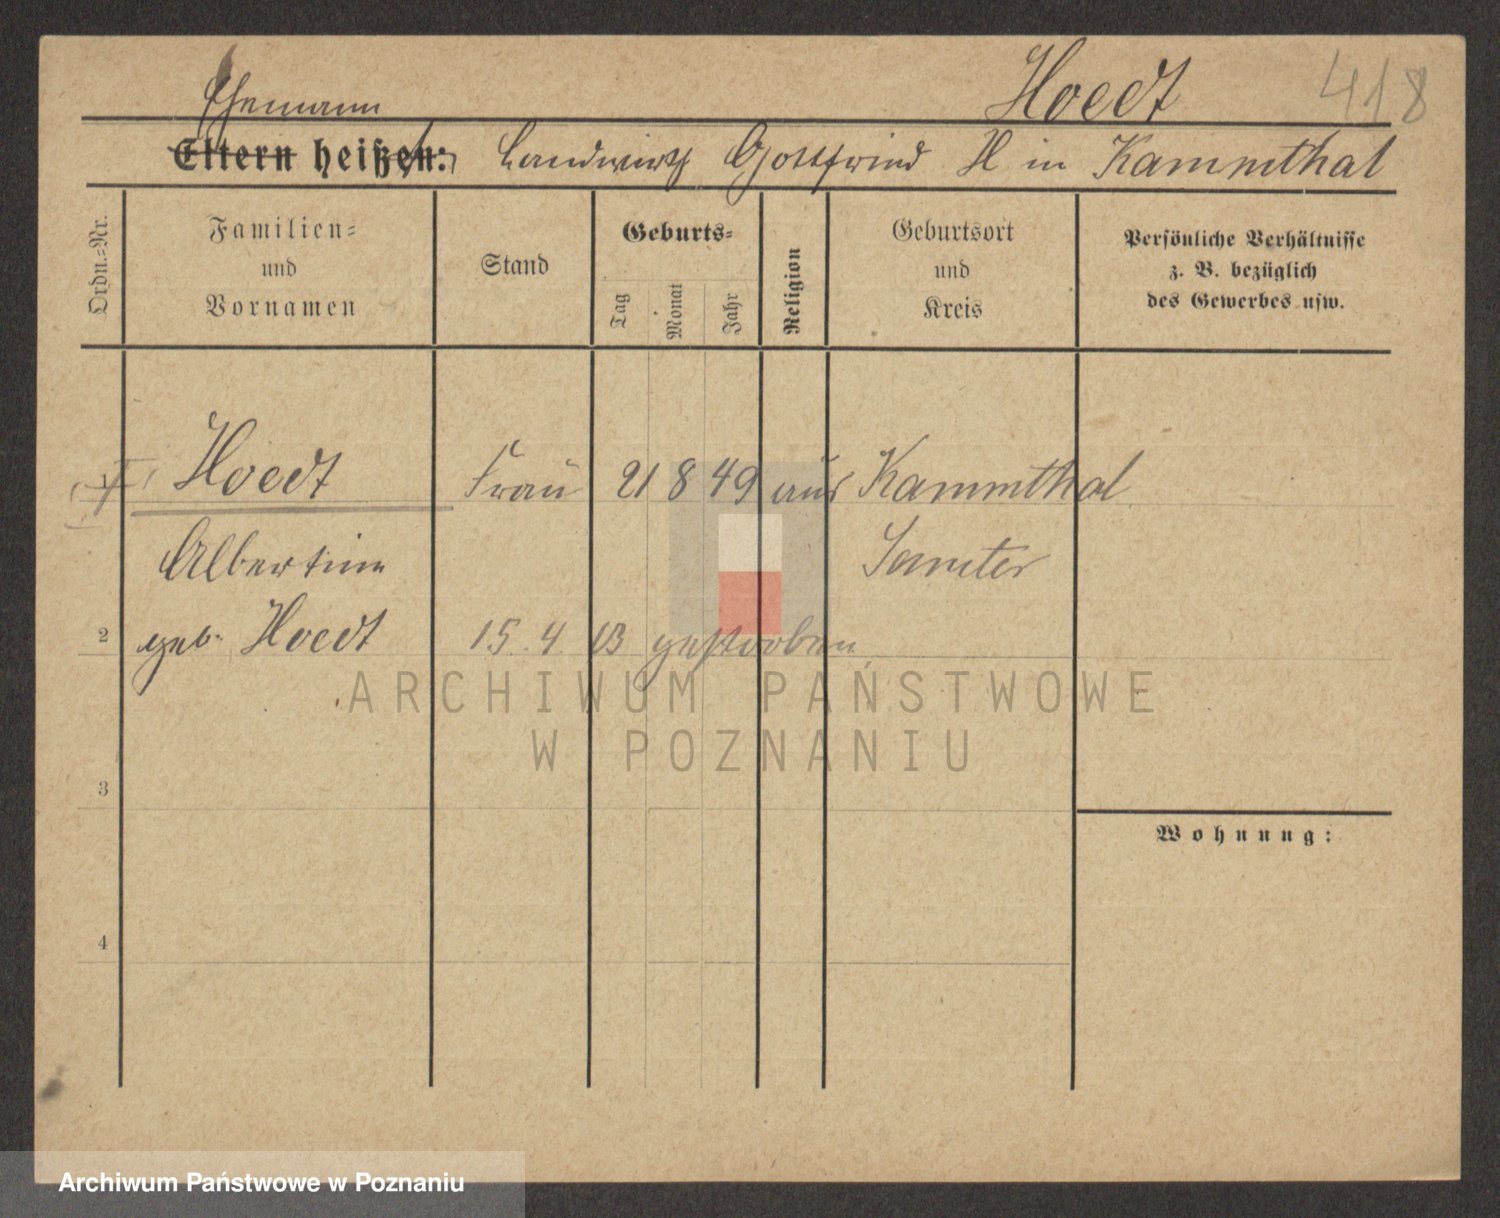 Hoedt 418
Ehemann
Eltern heißen: Landwirth Gottfried H in Kammthal
Ordn.-Nr.
Familien-
und
Vornamen
Stand
Geburts-
Tag
Monat
Jahr
Religion
Geburtsort
und
Kreis
Persönliche Verhältnisse
z. B. bezüglich
des Gewerbes usw.
Hoedt Frau 21 8 49 aus Kammthal
Albertine Samter
2 geb. Hoedt 15. 4 13 gestorben
ARCHIWUM PAŃSTWOWE
W POZNANIU
3
Wohnung:
4
Archiwum Państwowe w Poznaniu